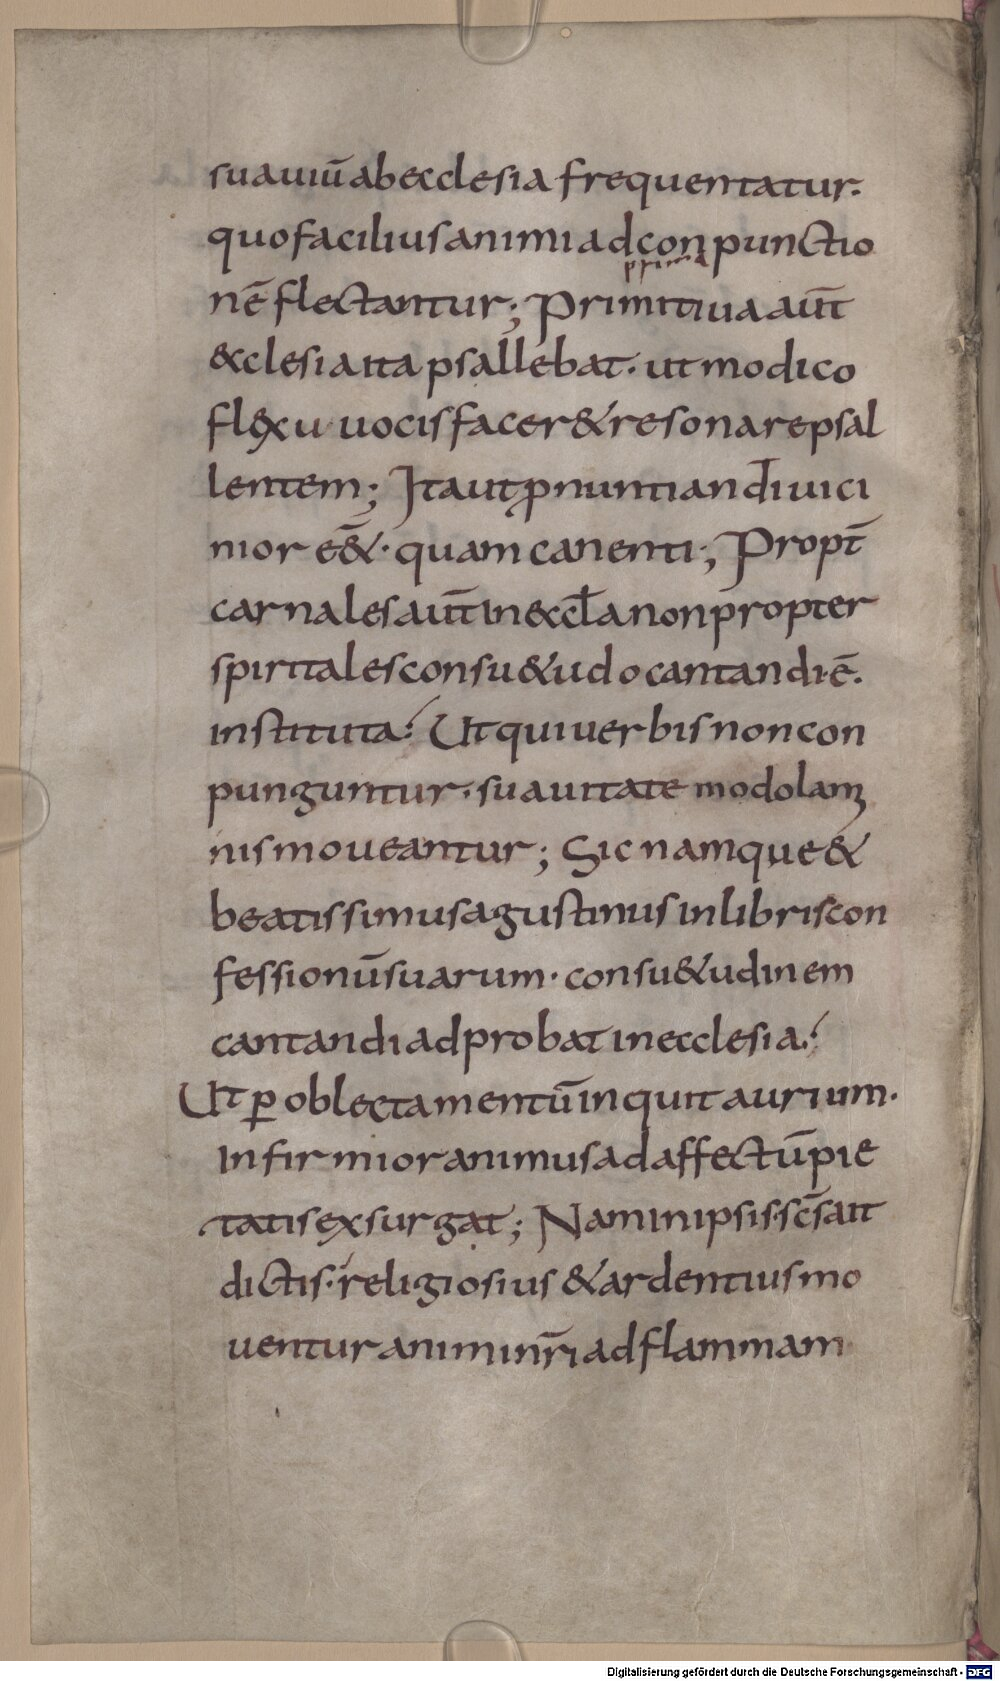 suauiū ab ecclesia frequentatur.
quo facilius animi ad conpunctio
prima
nē flectantur; Primitiua aut̄
&clesia ita psallebat. ut modico
flexu uocis facer& resonare psal
lentem; Ita ut ꝓnuntiandi uici
nior eē&. quam canenti; Propt̄
carnales aut̄ in eccl̄a non propter
spiritales consu&udo cantandi ē.
instituta! Ut qui uerbis non con
punguntur. suauitate modolam
nis moueantur; Sic namque &
beatissimus agustinus in libris con
fessionū suarum. consu&udinem
cantandi adprobat in ecclesia!
Ut ꝑ oblectamentū inquit aurium.
Infirmior animus ad affectū pie
tatis exsurgat; Nam in ipsis sc̄s ait
dictis. religiosius & ardentius mo
uentur animi nr̄i ad flammam
Digitalisierung gefördert durch die Deutsche Forschungsgemeinschaft - DFG